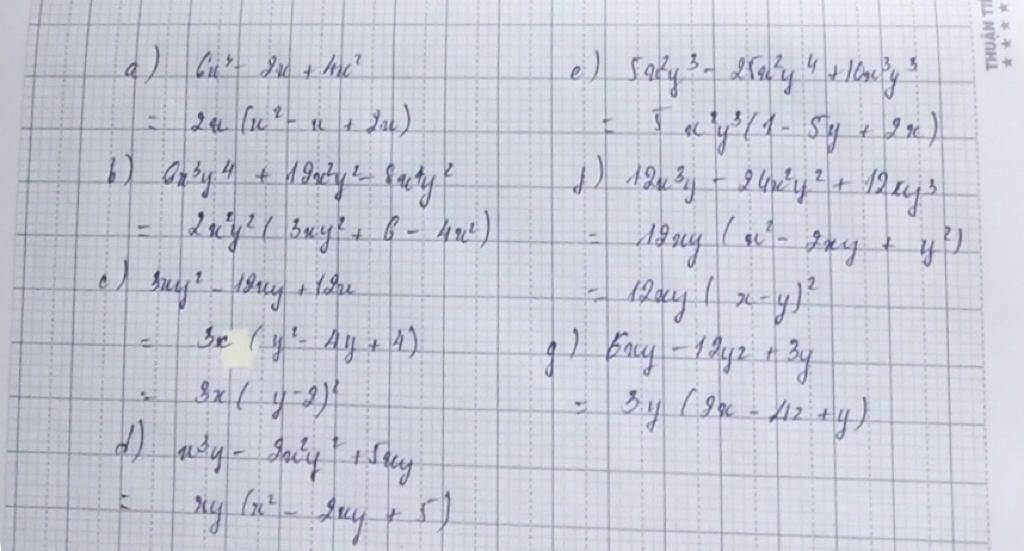 a) 6x³ - 2x + 4x²
= 2x (x² - x + 2x)
b) 6x³y⁴ + 12x²y² - 8x⁴y²
= 2x²y² ( 3xy² + 6 - 4x²)
c) 3xy² - 12xy + 12x
= 3x ( y² - 4y + 4)
= 3x ( y - 2)²
d) x³y - 2x²y² + 5xy
= xy (x² - 2xy + 5)
e) 5x²y³ - 25x²y⁴ + 10x³y³
= 5 x²y³ (1 - 5y + 2x)
f) 12x³y - 24x²y² + 12xy³
= 12xy ( x² - 2xy + y²)
= 12xy ( x - y)²
g) 6xy - 12yz + 3y
= 3y (2x - 4z + y)
THUẬN TI